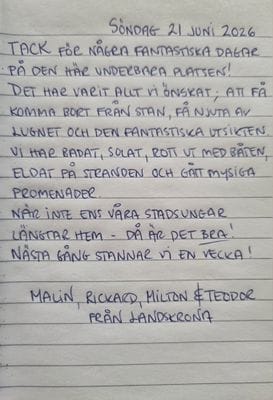 SÖNDAG 21 JUNI 2026
TACK FÖR NÅGRA FANTASTISKA DAGAR
PÅ DEN HÄR UNDERBARA PLATSEN!
DET HAR VARIT ALLT VI ÖNSKAT; ATT FÅ
KOMMA BORT FRÅN STAN, FÅ NJUTA AV
LUGNET OCH DEN FANTASTISKA UTSIKTEN.
VI HAR BADAT, SOLAT, ROTT UT MED BÅTEN,
ELDAT PÅ STRANDEN OCH GÅTT MYSIGA
PROMENADER.
NÄR INTE ENS VÅRA STADSUNGAR
LÄNGTAR HEM - DÅ ÄR DET BRA!
NÄSTA GÅNG STANNAR VI EN VECKA!
MALIN, RICKARD, MILTON & TEODOR
FRÅN LANDSKRONA